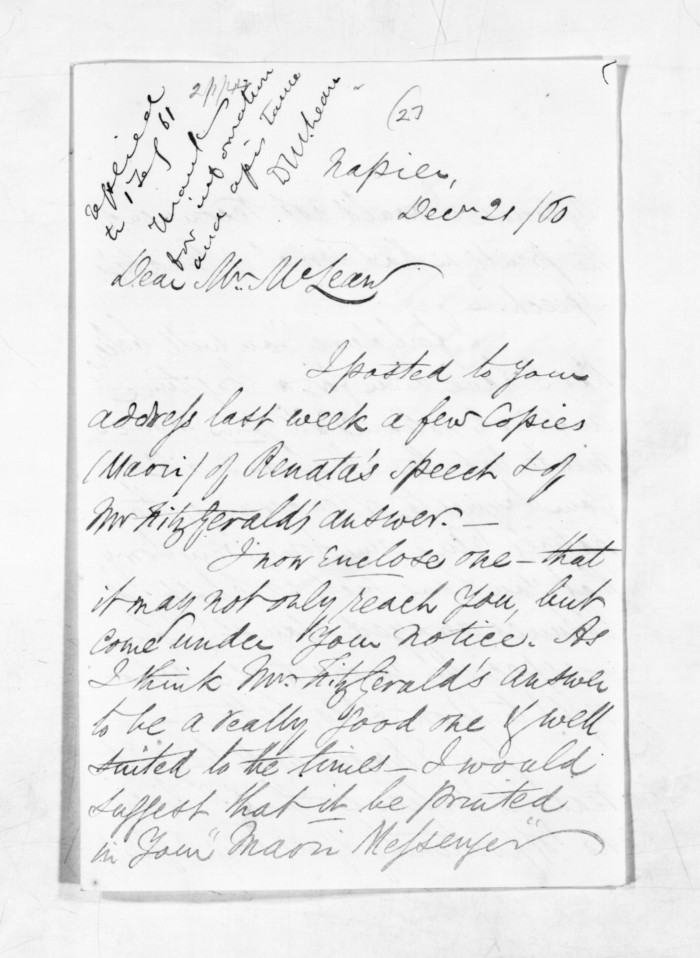 replied
to 1 Feby 61
thanks
for information
and assistance
D McLean
(27
Napier,
Decr 21/60
Dear Mr. McLean
I posted to Your
address last week a few Copies
(Maori) of Renata's speech & of
Mr FitzGerald's answer. —
I now enclose one — that
it may not only reach You, but
come under Your notice. As
I think Mr. FitzGerald's answer
to be a really good one & well
suited to the times — I would
suggest that it be printed
in Your "Maori Messenger"